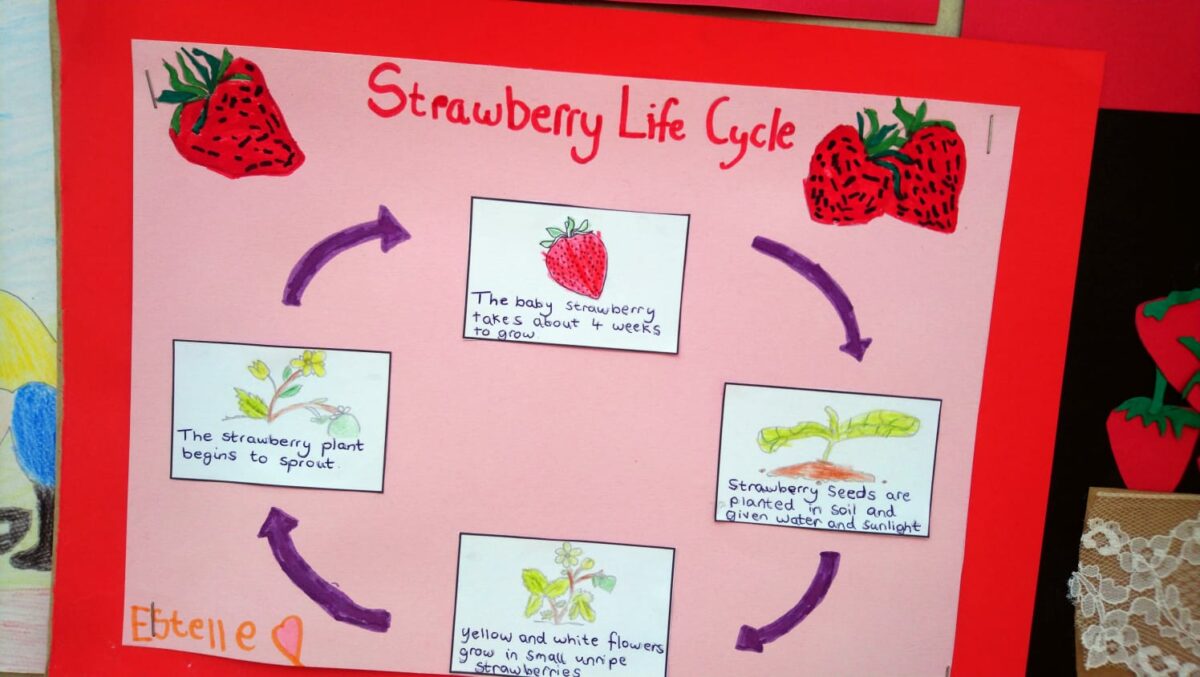 Strawberry Life Cycle
The baby strawberry
takes about 4 weeks
to grow.
Strawberry Seeds are
planted in Soil and
given water and sunlight
Yellow and white flowers
grow in small unripe
strawberries
The strawberry plant
begins to sprout.
Estelle